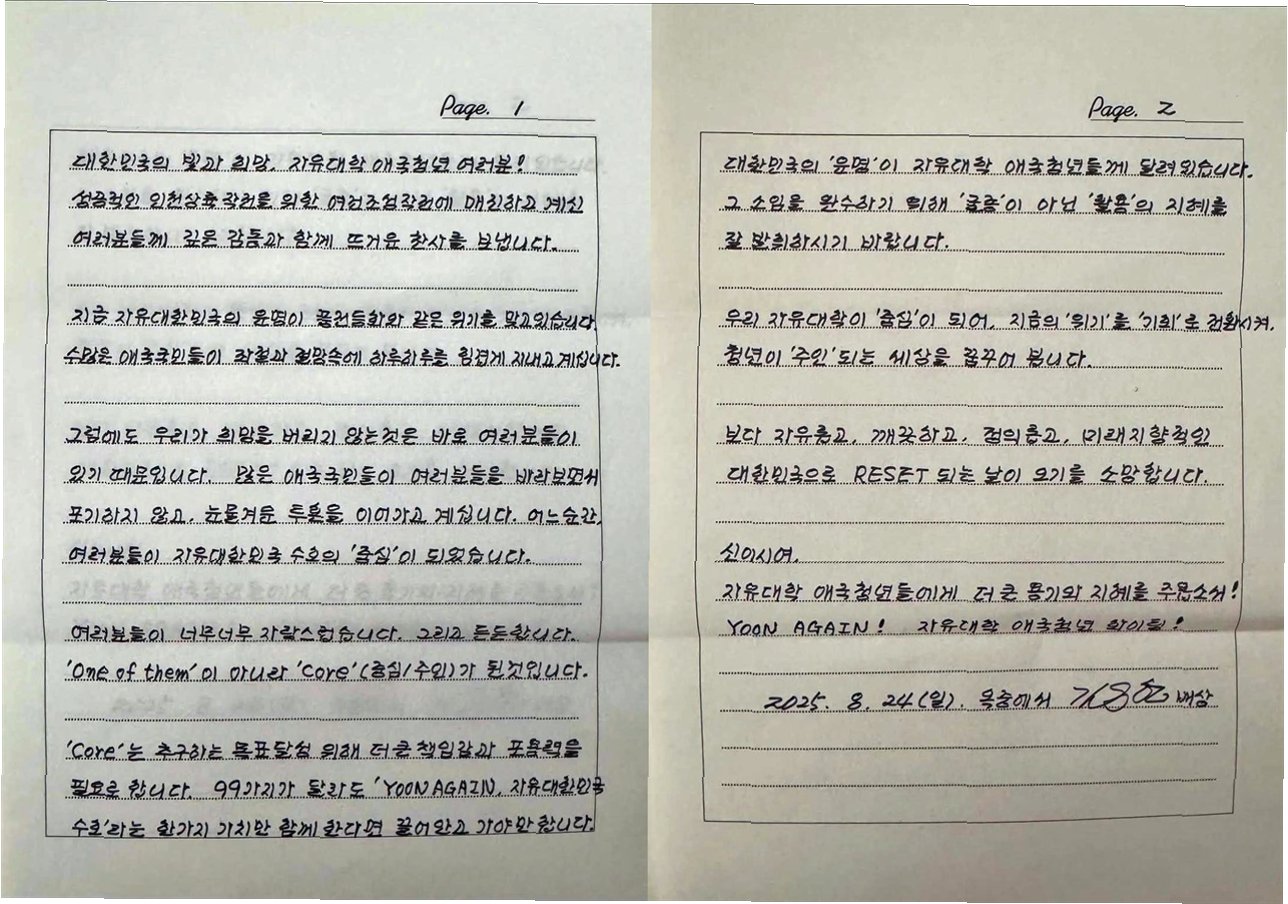 Page. 1
대한민국의 빛과 희망, 자유대학 애국청년 여러분!
성공적인 인천상륙작전을 위한 여건조성작전에 매진하고 계신
여러분들께 깊은 감동과 함께 뜨거운 찬사를 보냅니다.
지금 자유대한민국의 운명이 풍전등화와 같은 위기를 맞고있습니다.
수많은 애국국민들이 좌절과 절망속에 하루하루를 힘겹게 지내고 계십니다.
그럼에도 우리가 희망을 버리지 않는것은 바로 여러분들이
있기 때문입니다. 많은 애국국민들이 여러분들을 바라보면서
포기하지 않고, 눈물겨운 투혼을 이어가고 계십니다. 어느순간,
여러분들이 자유대한민국 수호의 '중심'이 되었습니다.
여러분들이 너무너무 자랑스럽습니다. 그리고 든든합니다.
'One of them'이 아니라 'Core'(중심/주인)가 된것입니다.
'Core'는 추구하는 목표달성 위해 더큰 책임감과 포용력을
필요로 합니다. 99가지가 달라도 'YOON AGAIN, 자유대한민국
수호'라는 한가지 가치만 함께 한다면 끌어안고 가야만 합니다.
Page. 2
대한민국의 '운명'이 자유대학 애국청년들께 달려있습니다.
그 소임을 완수하기 위해 '굴종'이 아닌 '활용'의 지혜를
잘 발휘하시기 바랍니다.
우리 자유대학이 '중심'이 되어, 지금의 '위기'를 '기회'로 전환시켜,
청년이 '주인'되는 세상을 꿈꾸어 봅니다.
보다 자유롭고, 깨끗하고, 정의롭고, 미래지향적인
대한민국으로 RESET 되는 날이 오기를 소망합니다.
신이시여,
자유대학 애국청년들에게 더 큰 용기와 지혜를 주옵소서!
YOON AGAIN! 자유대학 애국청년 화이팅!
2025. 8. 24(일). 옥중에서 배상